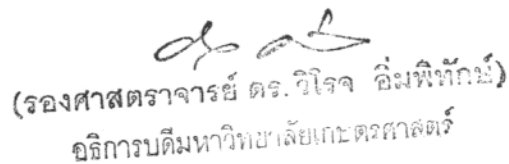 (รองศาสตราจารย์ ดร.วิโรจ อิ่มพิทักษ์)
อธิการบดีมหาวิทยาลัยเกษตรศาสตร์